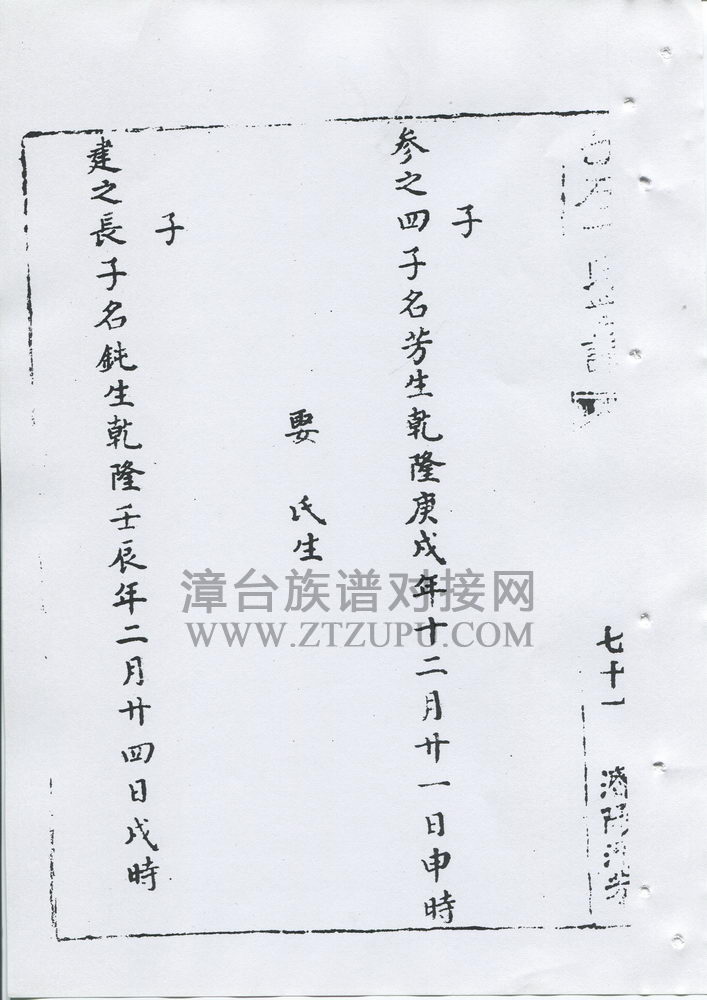 七十一
参之四子名芳生乾隆庚戌年十二月廿一日申時
子
娶 氏生
建之長子名鈍生乾隆壬辰年二月廿四日戌時
子
漳台族谱对接网
WWW.ZTZUPU.COM